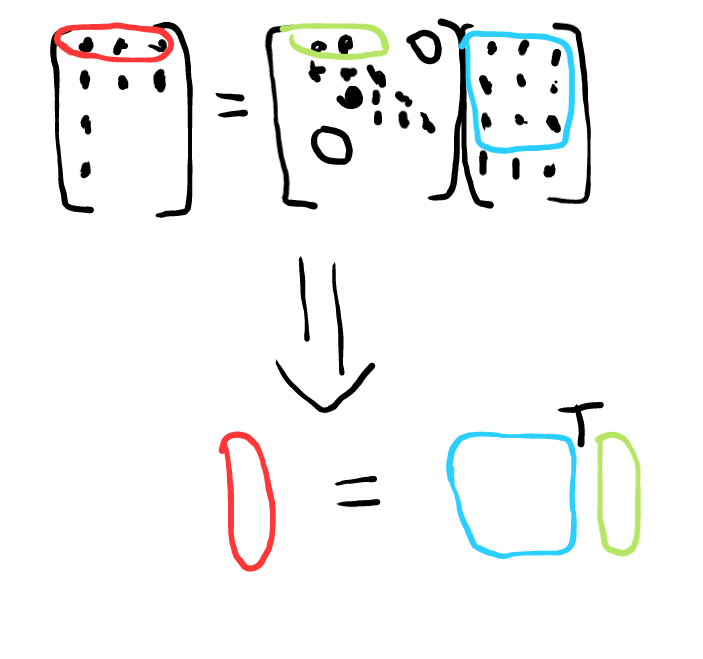 =
0
0
⇓
=
T